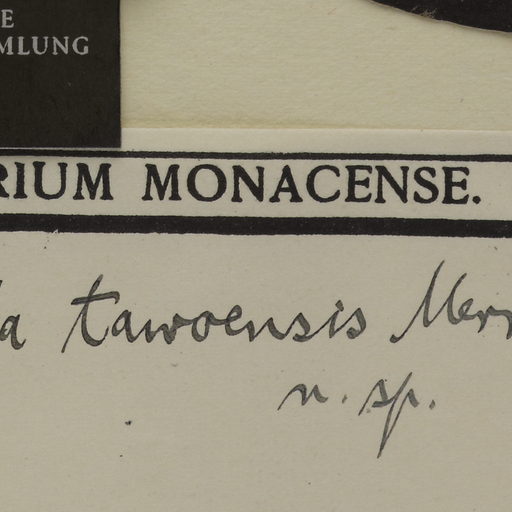 E
MLUNG
RIUM MONACENSE.
a tawoensis Merr
n. sp.